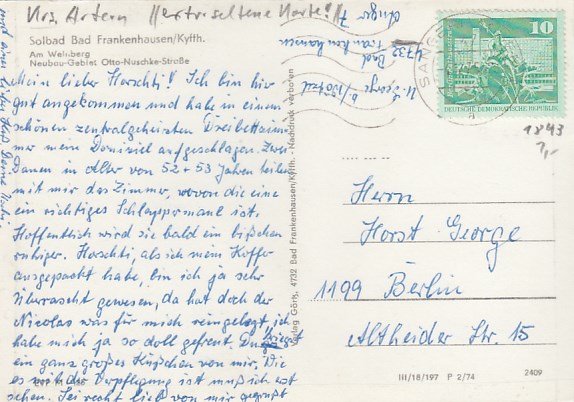 Krs. Artern !! ertruseltene Karte! !!
Solbad Bad Frankenhausen/Kyffh.
Am Weinberg
Neubau-Gebiet Otto-Nuschke-Straße
Mein lieber Horschti! Ich bin hier
gut angekommen und habe in einem
schönen zentralgeheizten Dreibettzim-
mer mein Domiziel aufgeschlagen. Zwei
Damen in Alter von 52 + 53 Jahren teilen
mit mir das Zimmer, wovon die eine
ein richtiges Schlappermaul ist.
Hoffentlich wird sie bald ein bißchen
ruhiger. Horschti, als ich mein Koffer
ausgepackt habe, bin ich ja sehr
überrascht gewesen, da hat doch der
Nicolas was für mich reingelegt, ich
habe mich ja so doll gefreut. Du kriegst
ein ganz großes Küßchen von mir. Wie
es mit der Verpflegung ist muß ich erst
sehen. Sei recht lieb von mir gegrüßt
und einen lieben Kuß Deine
U. George b/
4732 Bad
Frankenhausen
Anger 7
Verlag Görtz, 4732 Bad Frankenhausen/Kyffh. - Nachdruck verboten
SANGER
10
DEUTSCHE DEMOKRATISCHE REPUBLIK
1843
7,-
Herrn
Horst George
1199 Berlin
Altheider Str. 15
III/18/197 P 2/74 2409